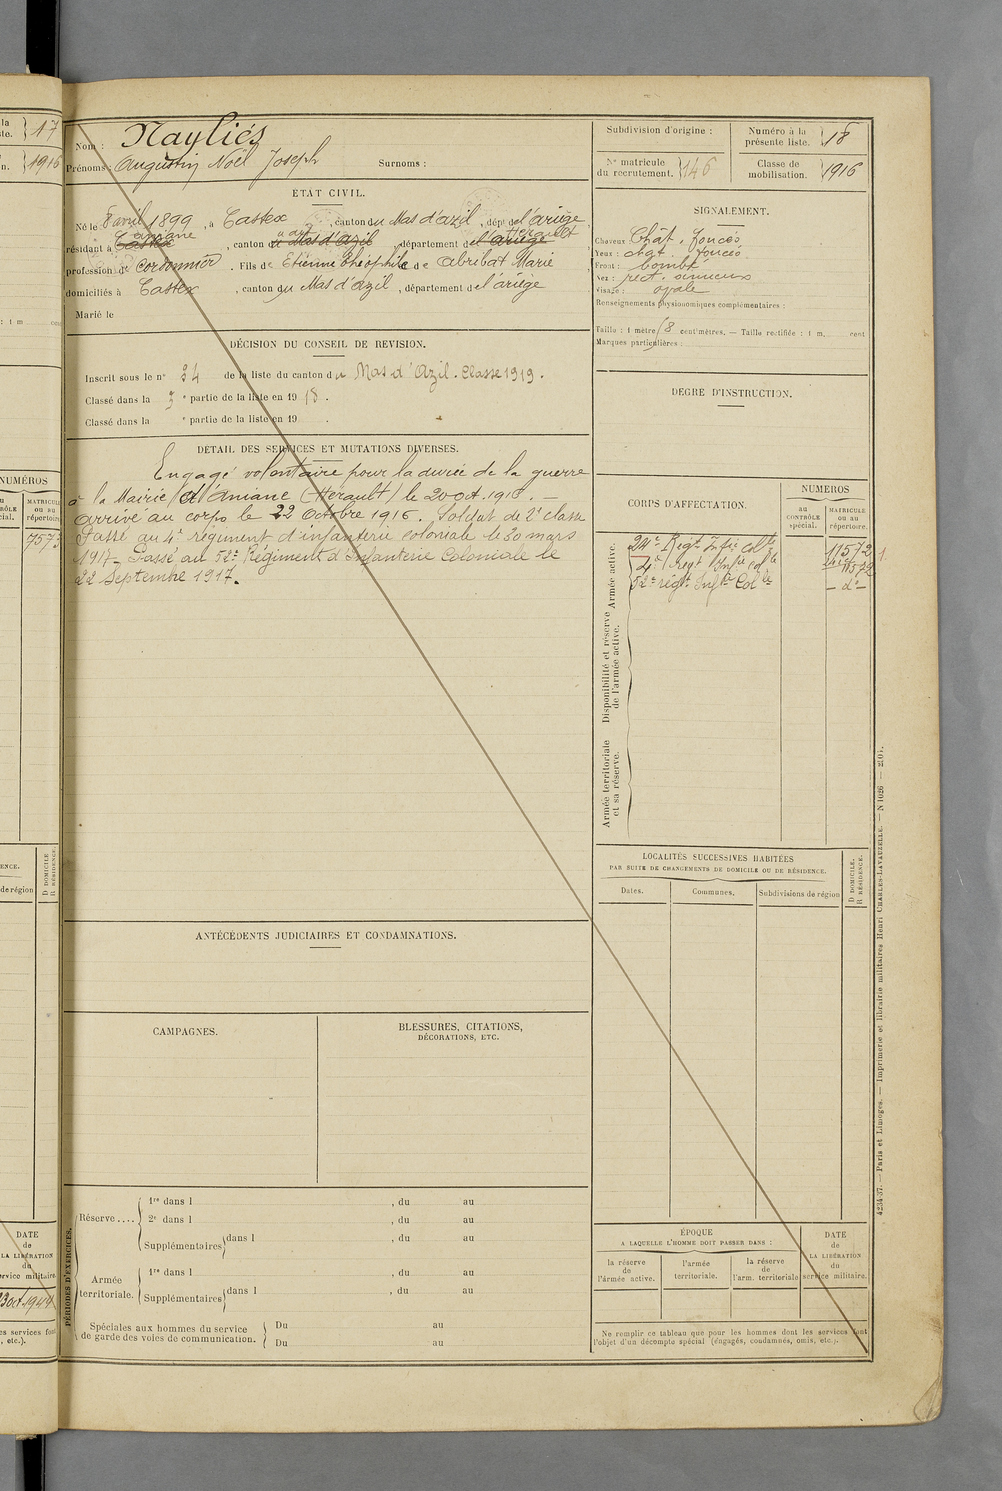 la
ste. 17
n. 1916
: 1 m cent
NUMÉROS
au
RÔLE
cial.
MATRICULE
ou au
répertoire
7573
ENCE.
de région
D DOMICILE
R RÉSIDENCE.
DATE
de
LA LIBÉRATION
du
service militaire.
oct. 1944
es services font
, etc.).
Nom : Nayliés
Prénoms : Augustin Noël Joseph Surnoms :
ÉTAT CIVIL.
Né le 8 avril 1899, à Castex, canton du Mas d'azil, dépt de l'ariège
aniane Hérault
résidant à Castex, canton du Mas d'azil, département de l'ariège
profession de cordonnier. Fils de Etienne Théophile et de Abribat Marie
domiciliés à Castex, canton du Mas d'azil, département de l'ariège
Marié le
DÉCISION DU CONSEIL DE REVISION.
Inscrit sous le n° 34 de la liste du canton du Mas d'Azil. Classe 1919.
Classé dans la 3e partie de la liste en 1918.
Classé dans la e partie de la liste en 19 .
DÉTAIL DES SERVICES ET MUTATIONS DIVERSES.
Engagé volontaire pour la durée de la guerre
à la Mairie d'Aniane (Hérault) le 20 oct. 1916. —
arrivé au corps le 22 Octobre 1916. Soldat de 2e classe
Passé au 4e régiment d'infanterie coloniale le 30 mars
1917. Passé au 52e Régiment d'Infanterie Coloniale le
22 Septembre 1917.
ANTÉCÉDENTS JUDICIAIRES ET CONDAMNATIONS.
CAMPAGNES.
BLESSURES, CITATIONS,
DÉCORATIONS, ETC.
PÉRIODES D'EXERCICES.
Réserve ....
1re dans l , du au
2e dans l , du au
Supplémentaires dans l , du au
Armée
territoriale.
1re dans l , du au
Supplémentaires dans l , du au
Spéciales aux hommes du service
de garde des voies de communication.
Du au
Du au
Subdivision d'origine :
Numéro à la
présente liste. 18
N° matricule
du recrutement. 146
Classe de
mobilisation. 1916
SIGNALEMENT.
Cheveux Chât. foncés
Yeux : chgt. foncés
Front : bombé
Nez : rect. sinueux
Visage : ovale
Renseignements physionomiques complémentaires :
Taille : 1 mètre 8 centimètres. — Taille rectifiée : 1 m. cent
Marques particulières :
DEGRÉ D'INSTRUCTION.
CORPS D'AFFECTATION.
NUMÉROS
au
CONTRÔLE
spécial.
MATRICULE
ou au
répertoire.
Armée active.
24e Regt Infie Colle
4e Regt Infie Colle
52e régt Infie Colle
11572
— do —
Disponibilité et réserve
de l'armée active.
Armée territoriale
et sa réserve.
LOCALITÉS SUCCESSIVES HABITÉES
PAR SUITE DE CHANGEMENTS DE DOMICILE OU DE RÉSIDENCE.
Dates.
Communes.
Subdivisions de région
D DOMICILE.
R RÉSIDENCE.
ÉPOQUE
A LAQUELLE L'HOMME DOIT PASSER DANS :
la réserve
de
l'armée active.
l'armée
territoriale.
la réserve
de
l'arm. territoriale
DATE
de
LA LIBÉRATION
du
service militaire.
Ne remplir ce tableau que pour les hommes dont les services font
l'objet d'un décompte spécial (engagés, condamnés, omis, etc.).
4234-37. — Paris et Limoges. — Imprimerie et librairie militaires Henri CHARLES-LAVAUZELLE. — N 1026